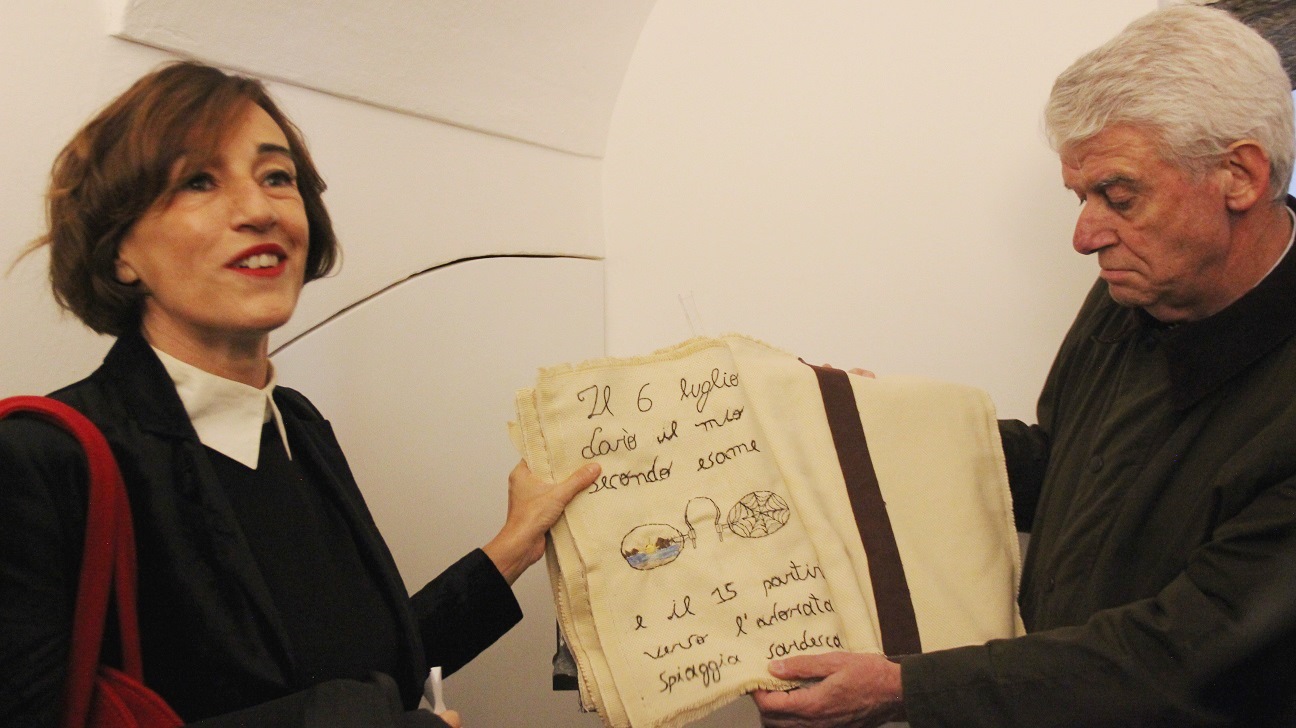 Il 6 luglio
darò il mio
secondo esame
e il 15 partir
verso l'adorata
spiaggia sardesca